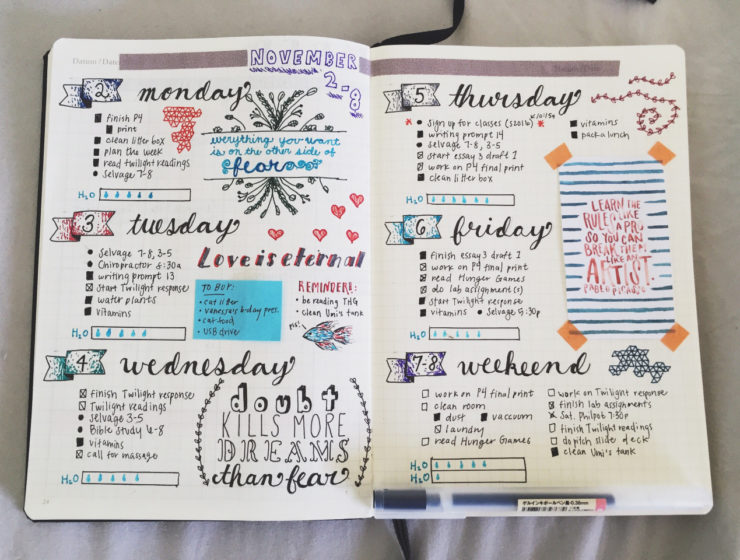 Datum / Date
NOVEMBER
2-8
2
monday
finish P4
print
clean litter box
plan the week
read twilight readings
selvage 7-8
H2O
everything you want
is on the other side of
fear
3
tuesday
selvage 7-8, 3-5
Chiropractor 8:30a
writing prompt 13
start Twilight response
water plants
vitamins
H2O
Love is eternal
TO BUY:
cat litter
vanessa's b-day pres.
cat food
USB driver
REMINDERS:
be reading THG
clean Umi's tank
pls!
4
wednesday
finish Twilight response
Twilight readings
selvage 3-5
Bible Study 6-8
vitamins
call for massage
H2O
doubt
KILLS MORE
DREAMS
than fear
24
Datum / Date
5
thursday
sign up for classes (S2016)
writing prompt 14
selvage 7-8, 3-5
start essay 3 draft 1
work on P4 final print
clean litter box
vitamins
pack a lunch
H2O
6
friday
finish essay 3 draft 1
work on P4 final print
read Hunger Games
do lab assignment(s)
start Twilight response
vitamins
selvage 5:30p
H2O
LEARN THE
RULES LIKE
A PRO
SO YOU CAN
BREAK THEM
LIKE AN
ARTIST.
PABLO PICASSO
7-8
weekend
work on P4 final print
clean room
dust
vaccuum
laundry
read Hunger Games
work on Twilight response
finish lab assignments
Sat. Philpot 7:30p
finish Twilight readings
do pitch slide deck
clean Umi's tank
H2O
H2O
ゲルインキボールペン 0.38mm